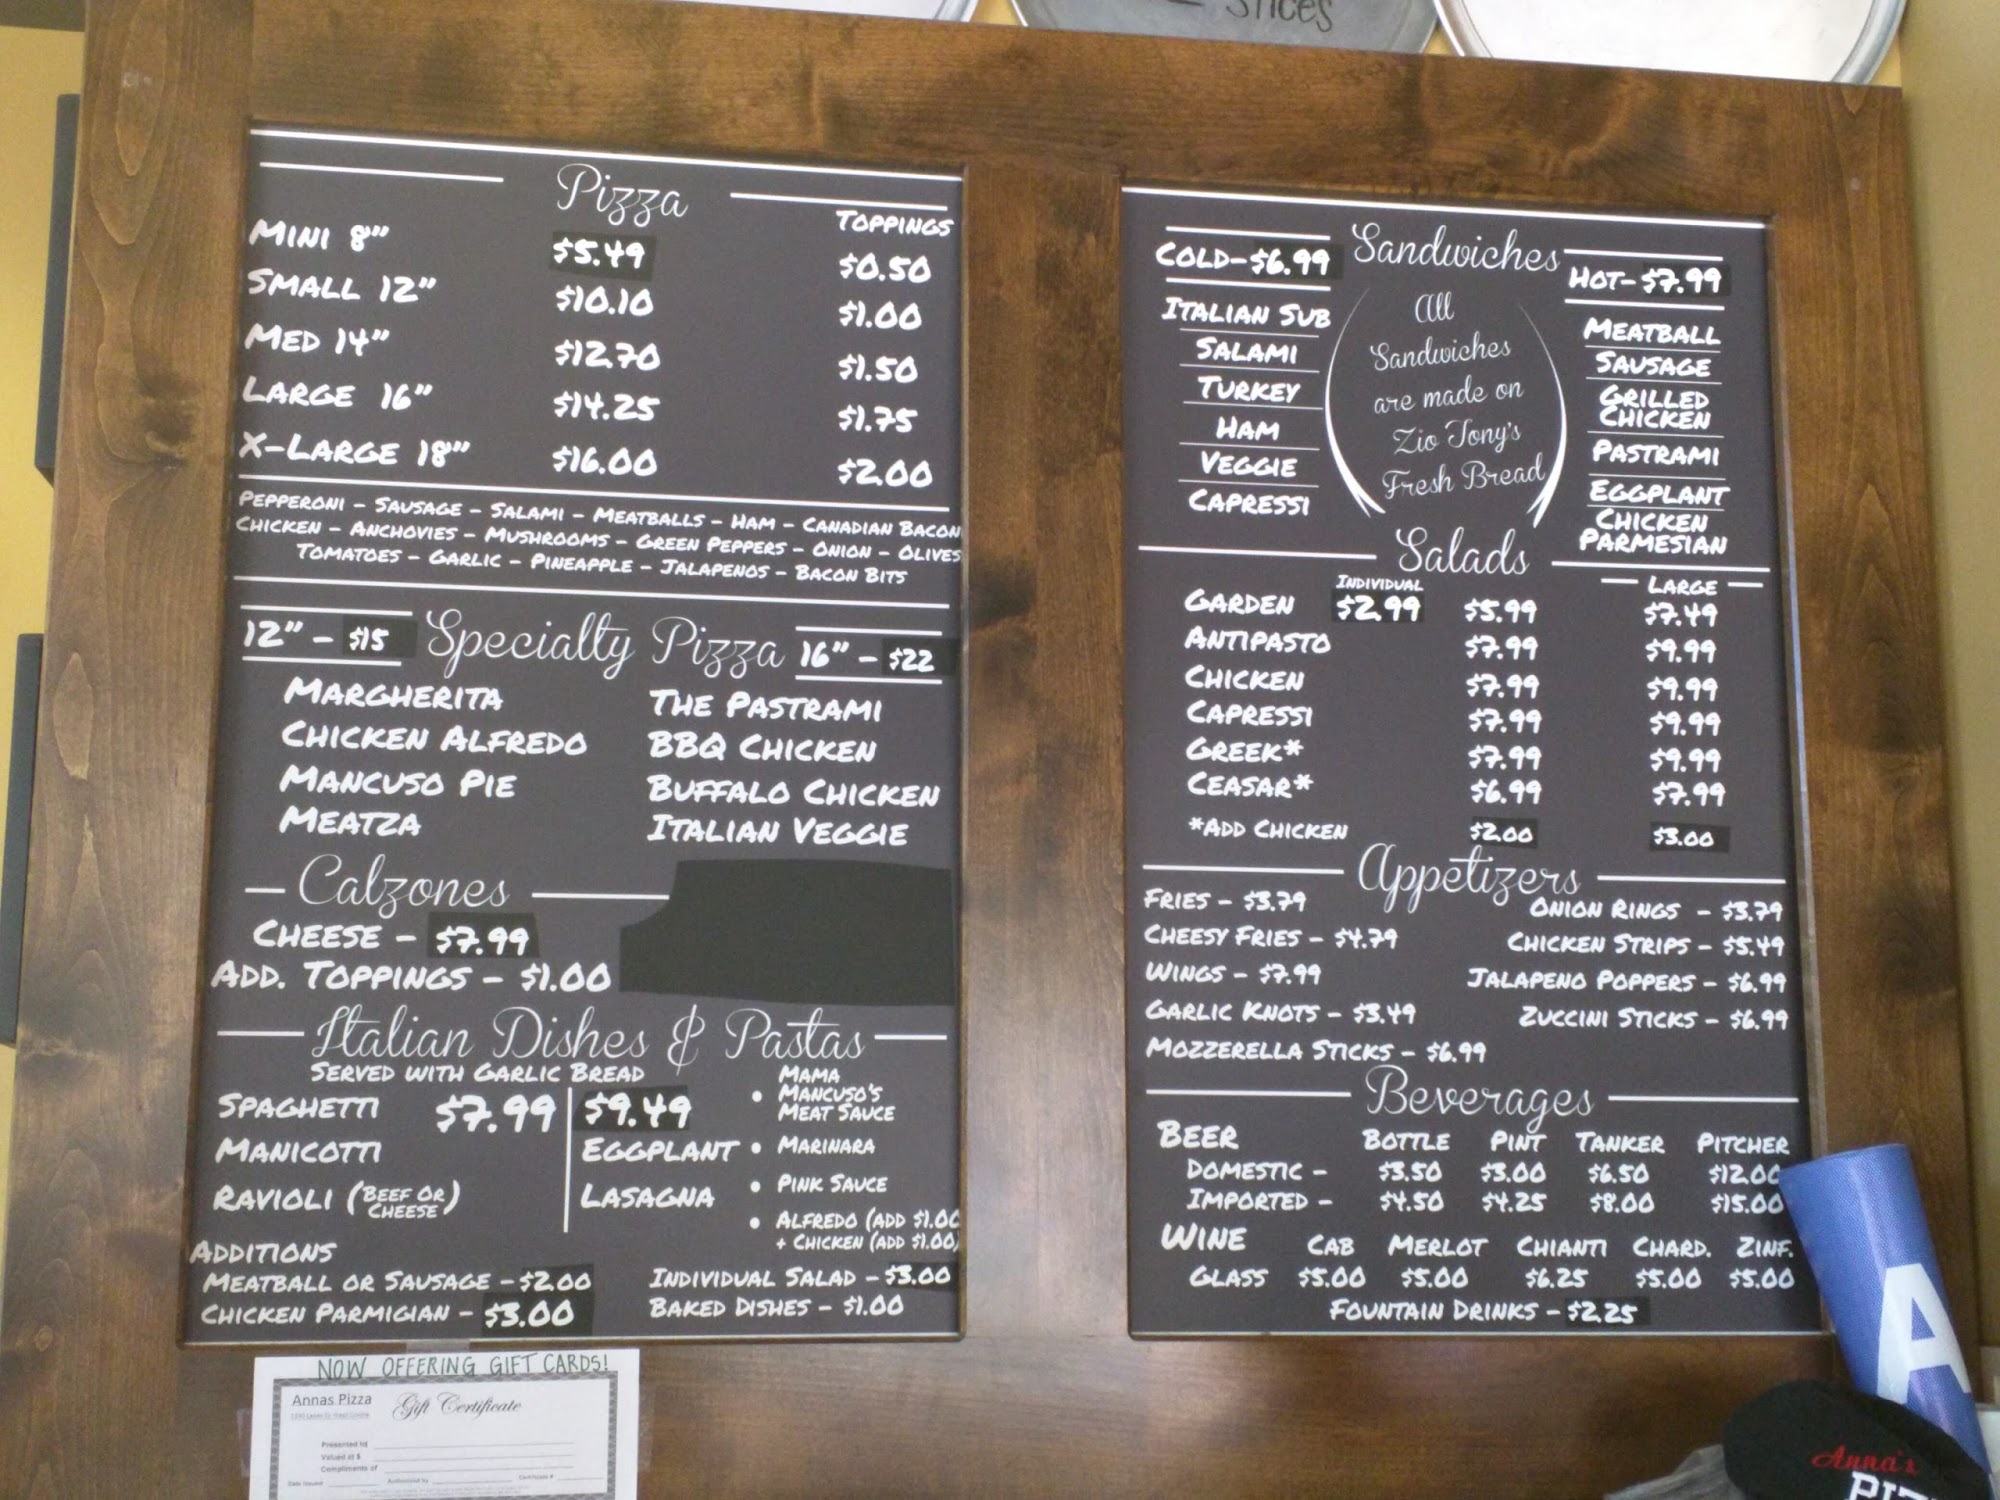 Slices
Pizza
Toppings
Mini 8" $5.49 $0.50
Small 12" $10.10 $1.00
Med 14" $12.70 $1.50
Large 16" $14.25 $1.75
X-Large 18" $16.00 $2.00
Pepperoni - Sausage - Salami - Meatballs - Ham - Canadian Bacon
Chicken - Anchovies - Mushrooms - Green Peppers - Onion - Olives
Tomatoes - Garlic - Pineapple - Jalapenos - Bacon Bits
12" - $15 Specialty Pizza 16" - $22
Margherita The Pastrami
Chicken Alfredo BBQ Chicken
Mancuso Pie Buffalo Chicken
Meatza Italian Veggie
Calzones
Cheese - $7.99
Add. Toppings - $1.00
Italian Dishes & Pastas
Served with Garlic Bread
Spaghetti $7.99 $9.49
Manicotti Eggplant
Ravioli (Beef or Cheese) Lasagna
• Mama
Mancuso's
Meat Sauce
• Marinara
• Pink Sauce
• Alfredo (add $1.00
+ Chicken (add $1.00)
Additions
Meatball or Sausage - $2.00 Individual Salad - $3.00
Chicken Parmigian - $3.00 Baked Dishes - $1.00
Sandwiches
Cold-$6.99 Hot-$7.99
Italian Sub
Salami
Turkey
Ham
Veggie
Capressi
All
Sandwiches
are made on
Zio Tony's
Fresh Bread
Meatball
Sausage
Grilled
Chicken
Pastrami
Eggplant
Chicken
Parmesian
Salads
Individual Large
Garden $2.99 $5.99 $7.49
Antipasto $7.99 $9.99
Chicken $7.99 $9.99
Capressi $7.99 $9.99
Greek* $7.99 $9.99
Ceasar* $6.99 $7.99
*Add Chicken $2.00 $3.00
Appetizers
Fries - $3.79 Onion Rings - $3.79
Cheesy Fries - $4.79 Chicken Strips - $5.49
Wings - $7.99 Jalapeno Poppers - $6.99
Garlic Knots - $3.49 Zuccini Sticks - $6.99
Mozzerella Sticks - $6.99
Beverages
Beer Bottle Pint Tanker Pitcher
Domestic - $3.50 $3.00 $6.50 $12.00
Imported - $4.50 $4.25 $8.00 $15.00
Wine Cab Merlot Chianti Chard. Zinf.
Glass $5.00 $5.00 $6.25 $5.00 $5.00
Fountain Drinks - $2.25
NOW OFFERING GIFT CARDS!
Annas Pizza Gift Certificate
Presented to
Valued at $
Compliments of
Date Issued Authorized by Certificate #
A
Anna's